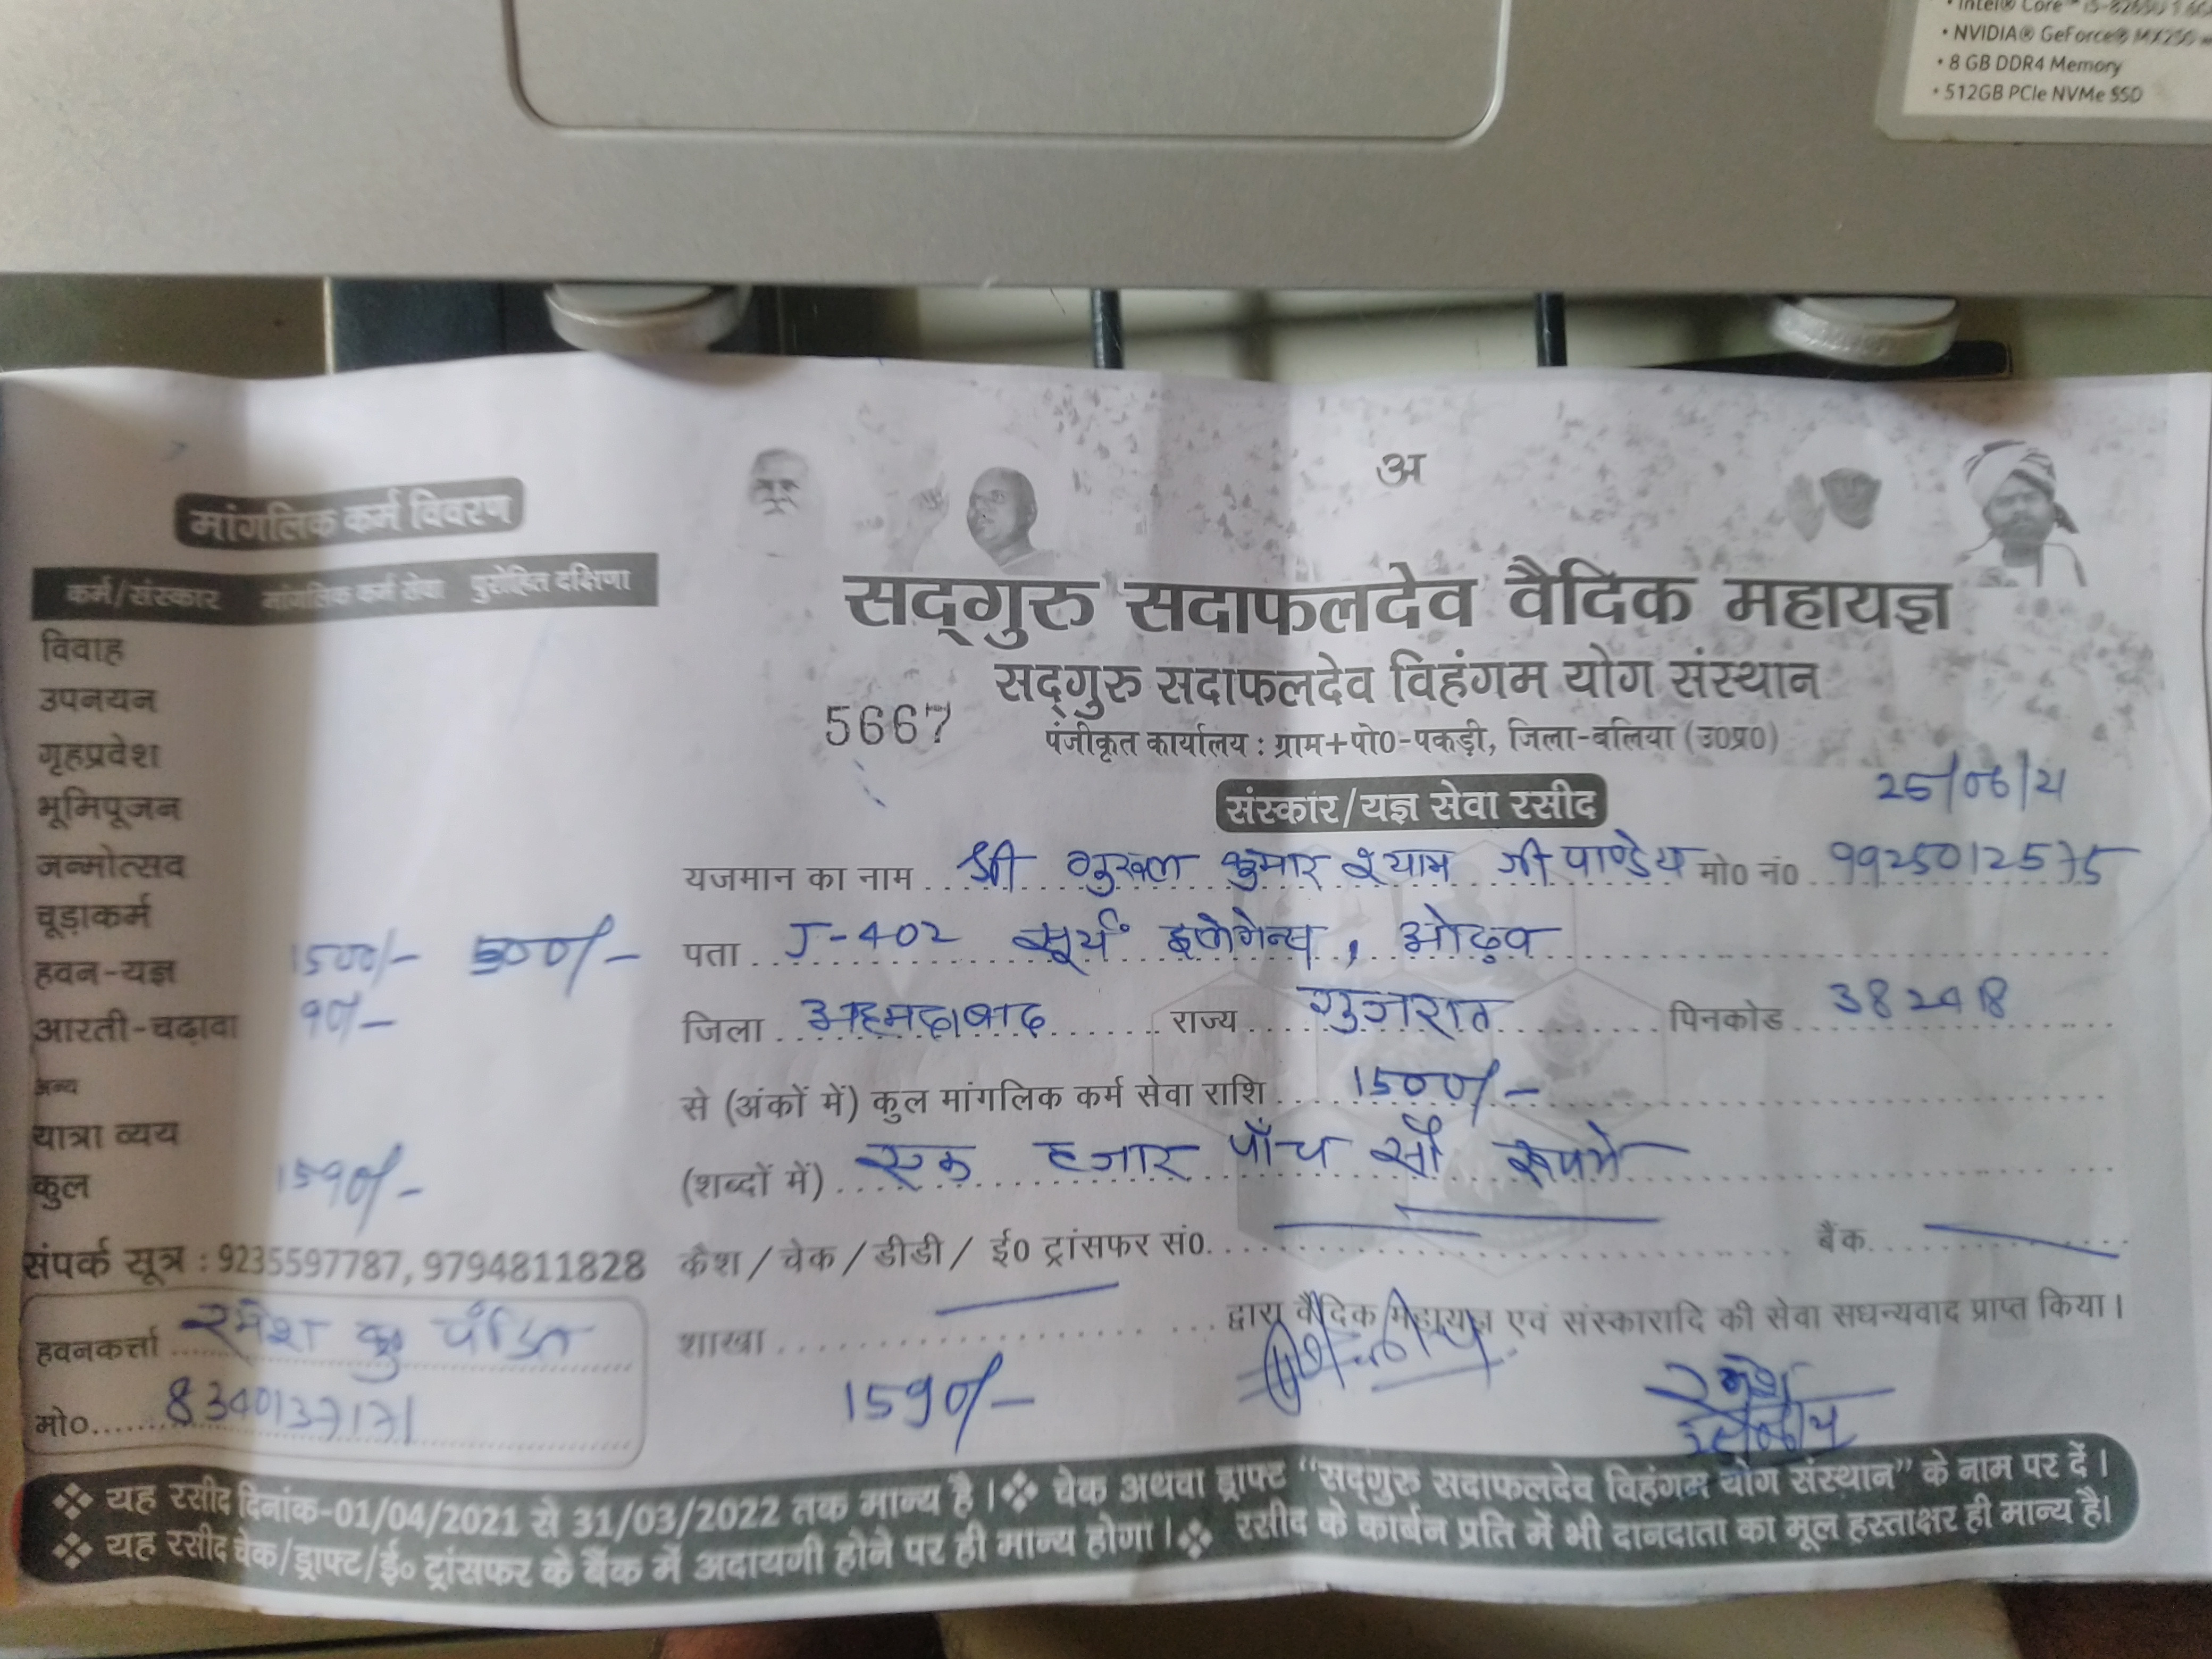 • Intel® Core™ i5-8265U
• NVIDIA® GeForce® MX250
• 8 GB DDR4 Memory
• 512GB PCIe NVMe SSD
अ
मांगलिक कर्म विवरण
कर्म/संस्कार मांगलिक कर्म सेवा पुरोहित दक्षिणा
विवाह
उपनयन
गृहप्रवेश
भूमिपूजन
जन्मोत्सव
चूड़ाकर्म
हवन-यज्ञ 1500/- 500/-
आरती-चढ़ावा 90/-
अन्य
यात्रा व्यय
कुल 1590/-
संपर्क सूत्र : 9235597787, 9794811828
हवनकर्त्ता रमेश कु पंडित
मो0. 8340137171
सद्गुरु सदाफलदेव वैदिक महायज्ञ
सद्गुरु सदाफलदेव विहंगम योग संस्थान
5667
पंजीकृत कार्यालय : ग्राम+पो0-पकड़ी, जिला-बलिया (उ0प्र0)
25/06/21
संस्कार/यज्ञ सेवा रसीद
यजमान का नाम श्री कुमार श्याम जी पाण्डेय मो0 नं0 9925012575
पता J-402 सूर्यं इलेगेन्स, ओढ़व
जिला अहमदाबाद राज्य गुजरात पिनकोड 382418
से (अंकों में) कुल मांगलिक कर्म सेवा राशि 1500/-
(शब्दों में) एक हजार पाँच सौ रूपये
कैश / चेक / डीडी / ई0 ट्रांसफर सं0. बैंक
शाखा द्वारा वैदिक महायज्ञ एवं संस्कारादि की सेवा सधन्यवाद प्राप्त किया।
1590/- रमेश
❖ यह रसीद दिनांक-01/04/2021 से 31/03/2022 तक मान्य है। ❖ चेक अथवा ड्राफ्ट “सद्गुरु सदाफलदेव विहंगम योग संस्थान” के नाम पर दें।
❖ यह रसीद चेक/ड्राफ्ट/ई० ट्रांसफर के बैंक में अदायगी होने पर ही मान्य होगा। ❖ रसीद के कार्बन प्रति में भी दानदाता का मूल हस्ताक्षर ही मान्य है।